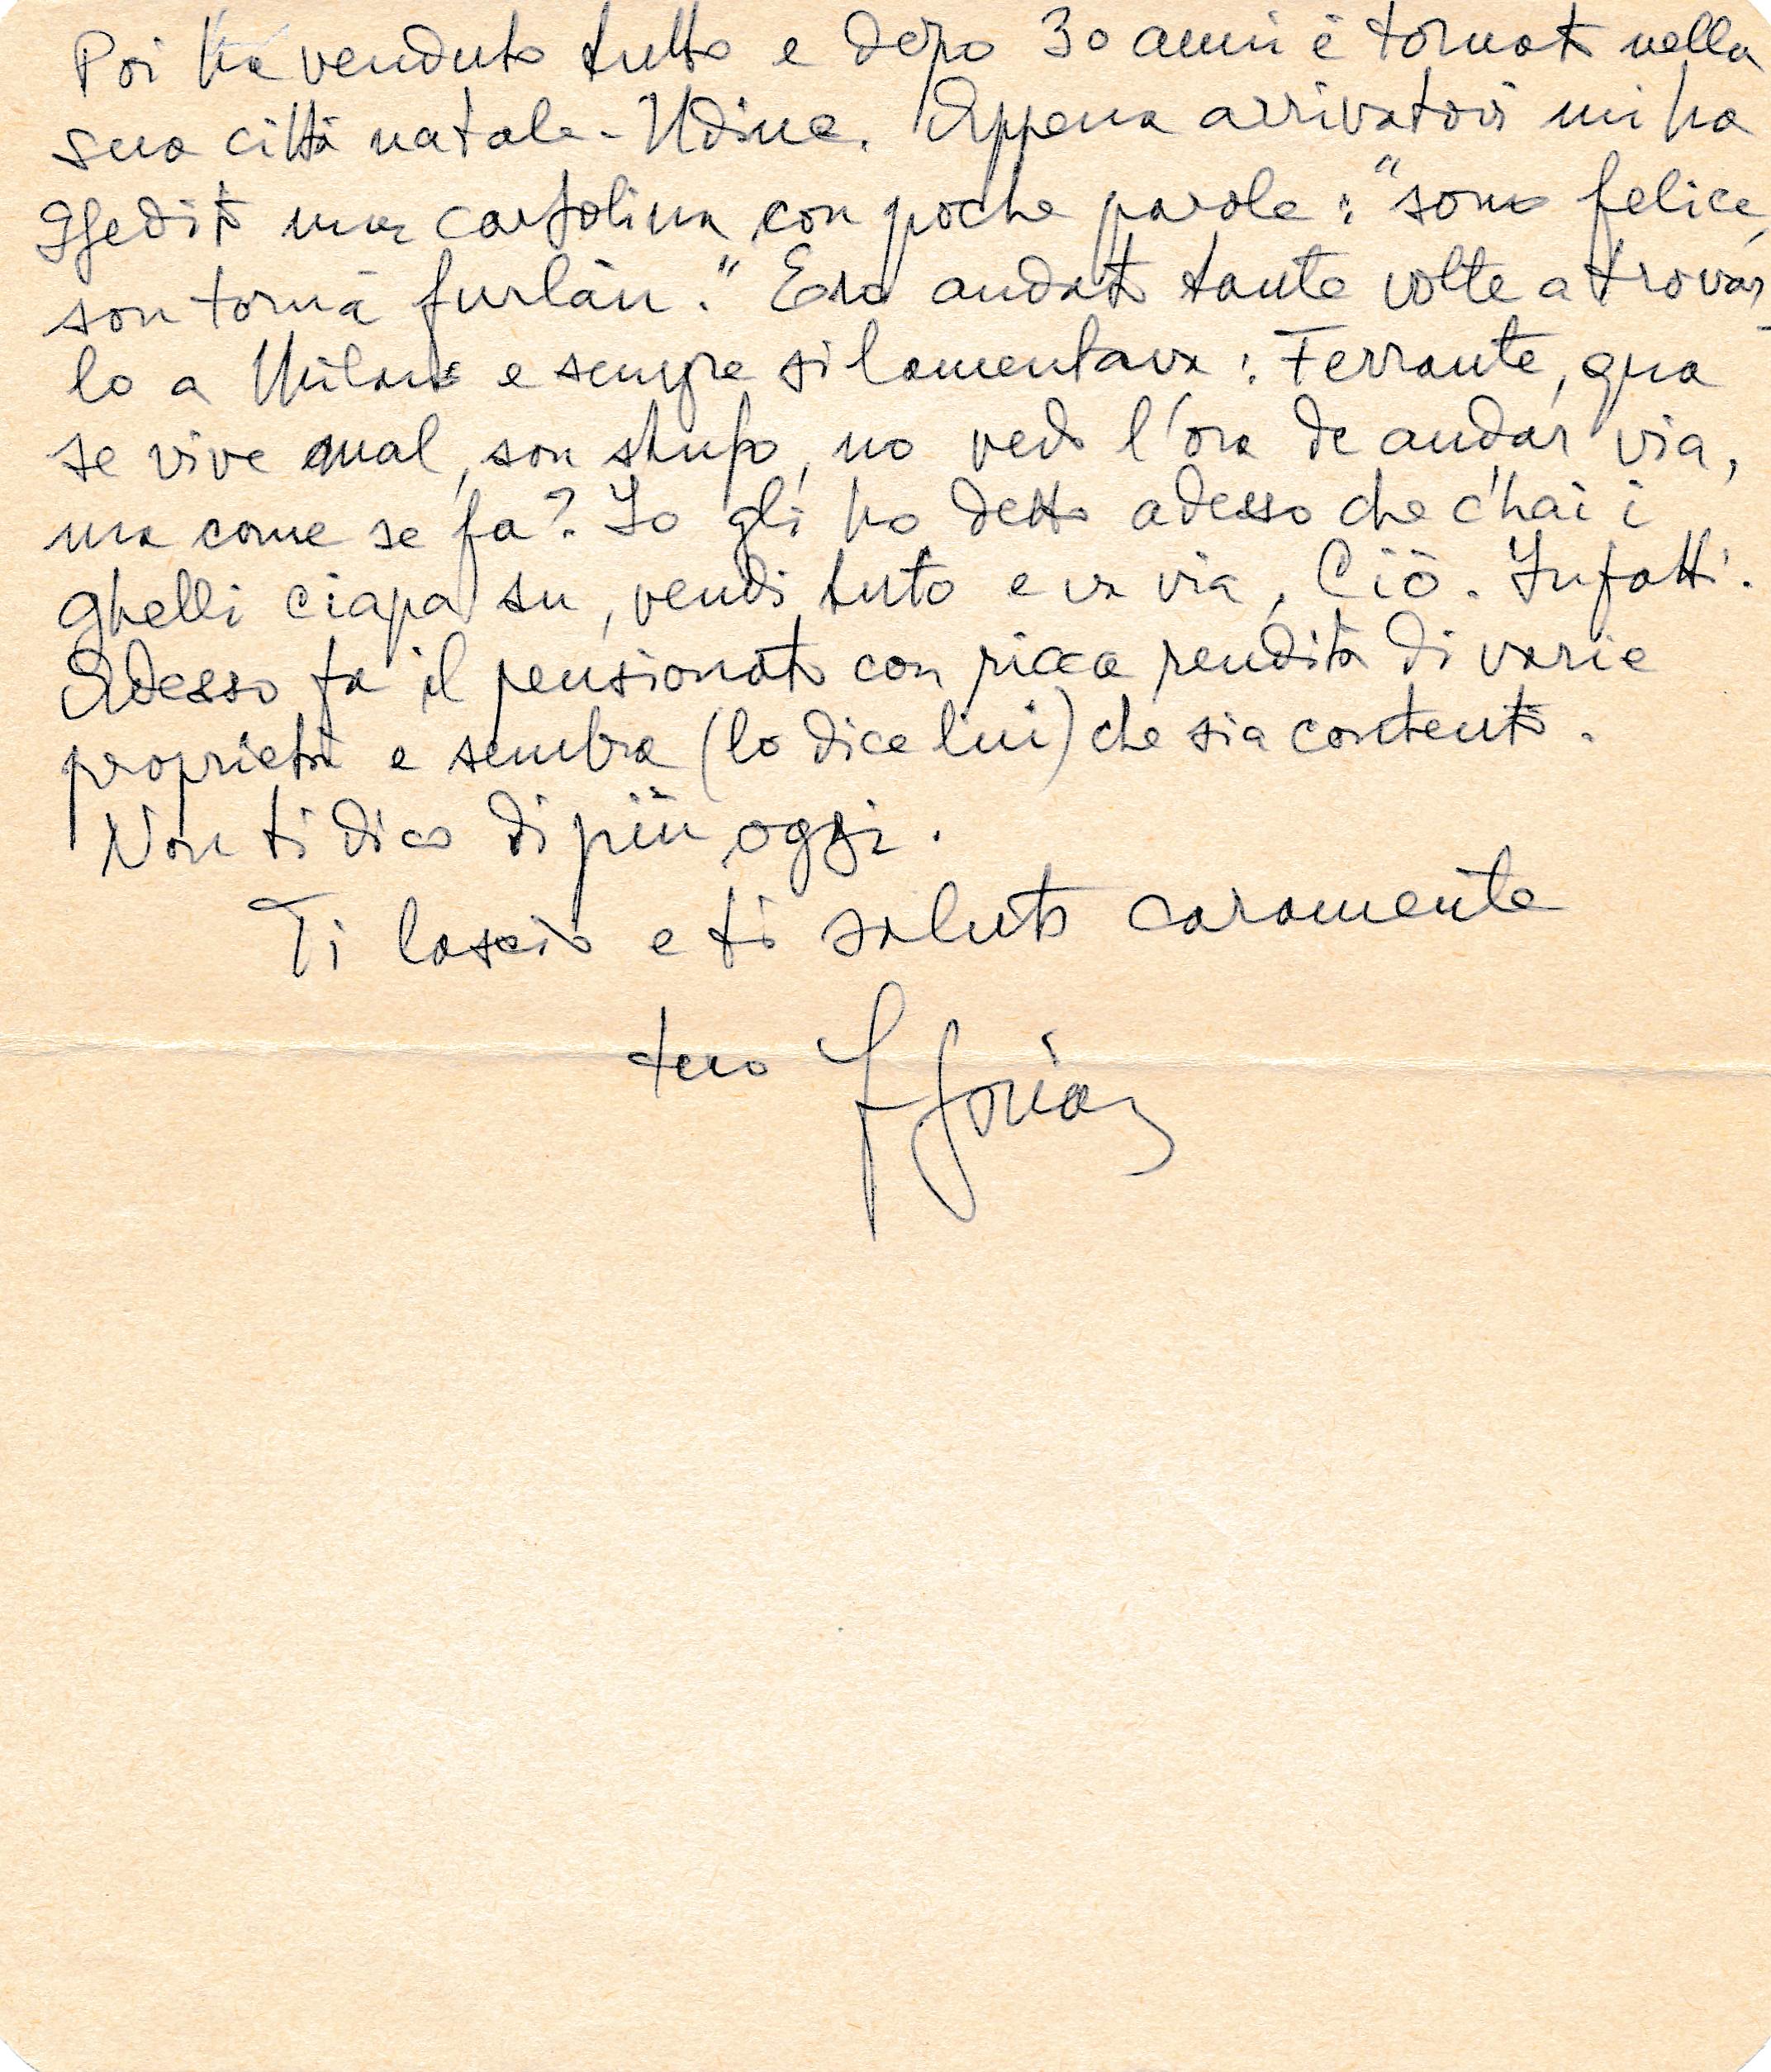 Poi ha venduto tutto e dopo 30 anni è tornato nella
sua città natale - Udine. Appena arrivatovi mi ha
spedito una cartolina con poche parole: "sono felice,
son tornà furlàn." Ero andato tante volte a trovar-
lo a Milano e sempre si lamentava: Ferrante, qua
se vive mal, son stufo, no vedo l'ora de andar via,
ma come se fa? Io gli ho detto adesso che c'hai i
ghelli ciapa su, vendi tuto e va via, Ciò. Infatti.
Adesso fa il pensionato con ricca rendita di varie
proprietà e sembra (lo dice lui) che sia contento.
Non ti dico di più oggi.
Ti lascio e ti saluto caramente
tuo